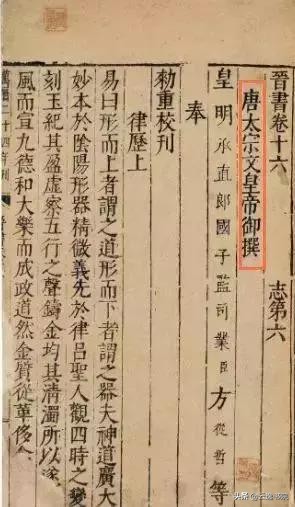 晉書卷十六 志第六
唐太宗文皇帝御撰
皇明承直郎國子監司業臣方從哲等
奉
勑重校刊
律歷上
易曰形而上者謂之道形而下者謂之器夫神道廣大
妙本於陰陽形器精微義先於律呂聖人觀四時之變
刻玉紀其盈虛察五行之聲鑄金均其清濁所以遂八
風而宣九德和大樂而成政道然金質從革侈弇
萬曆二十四年刊